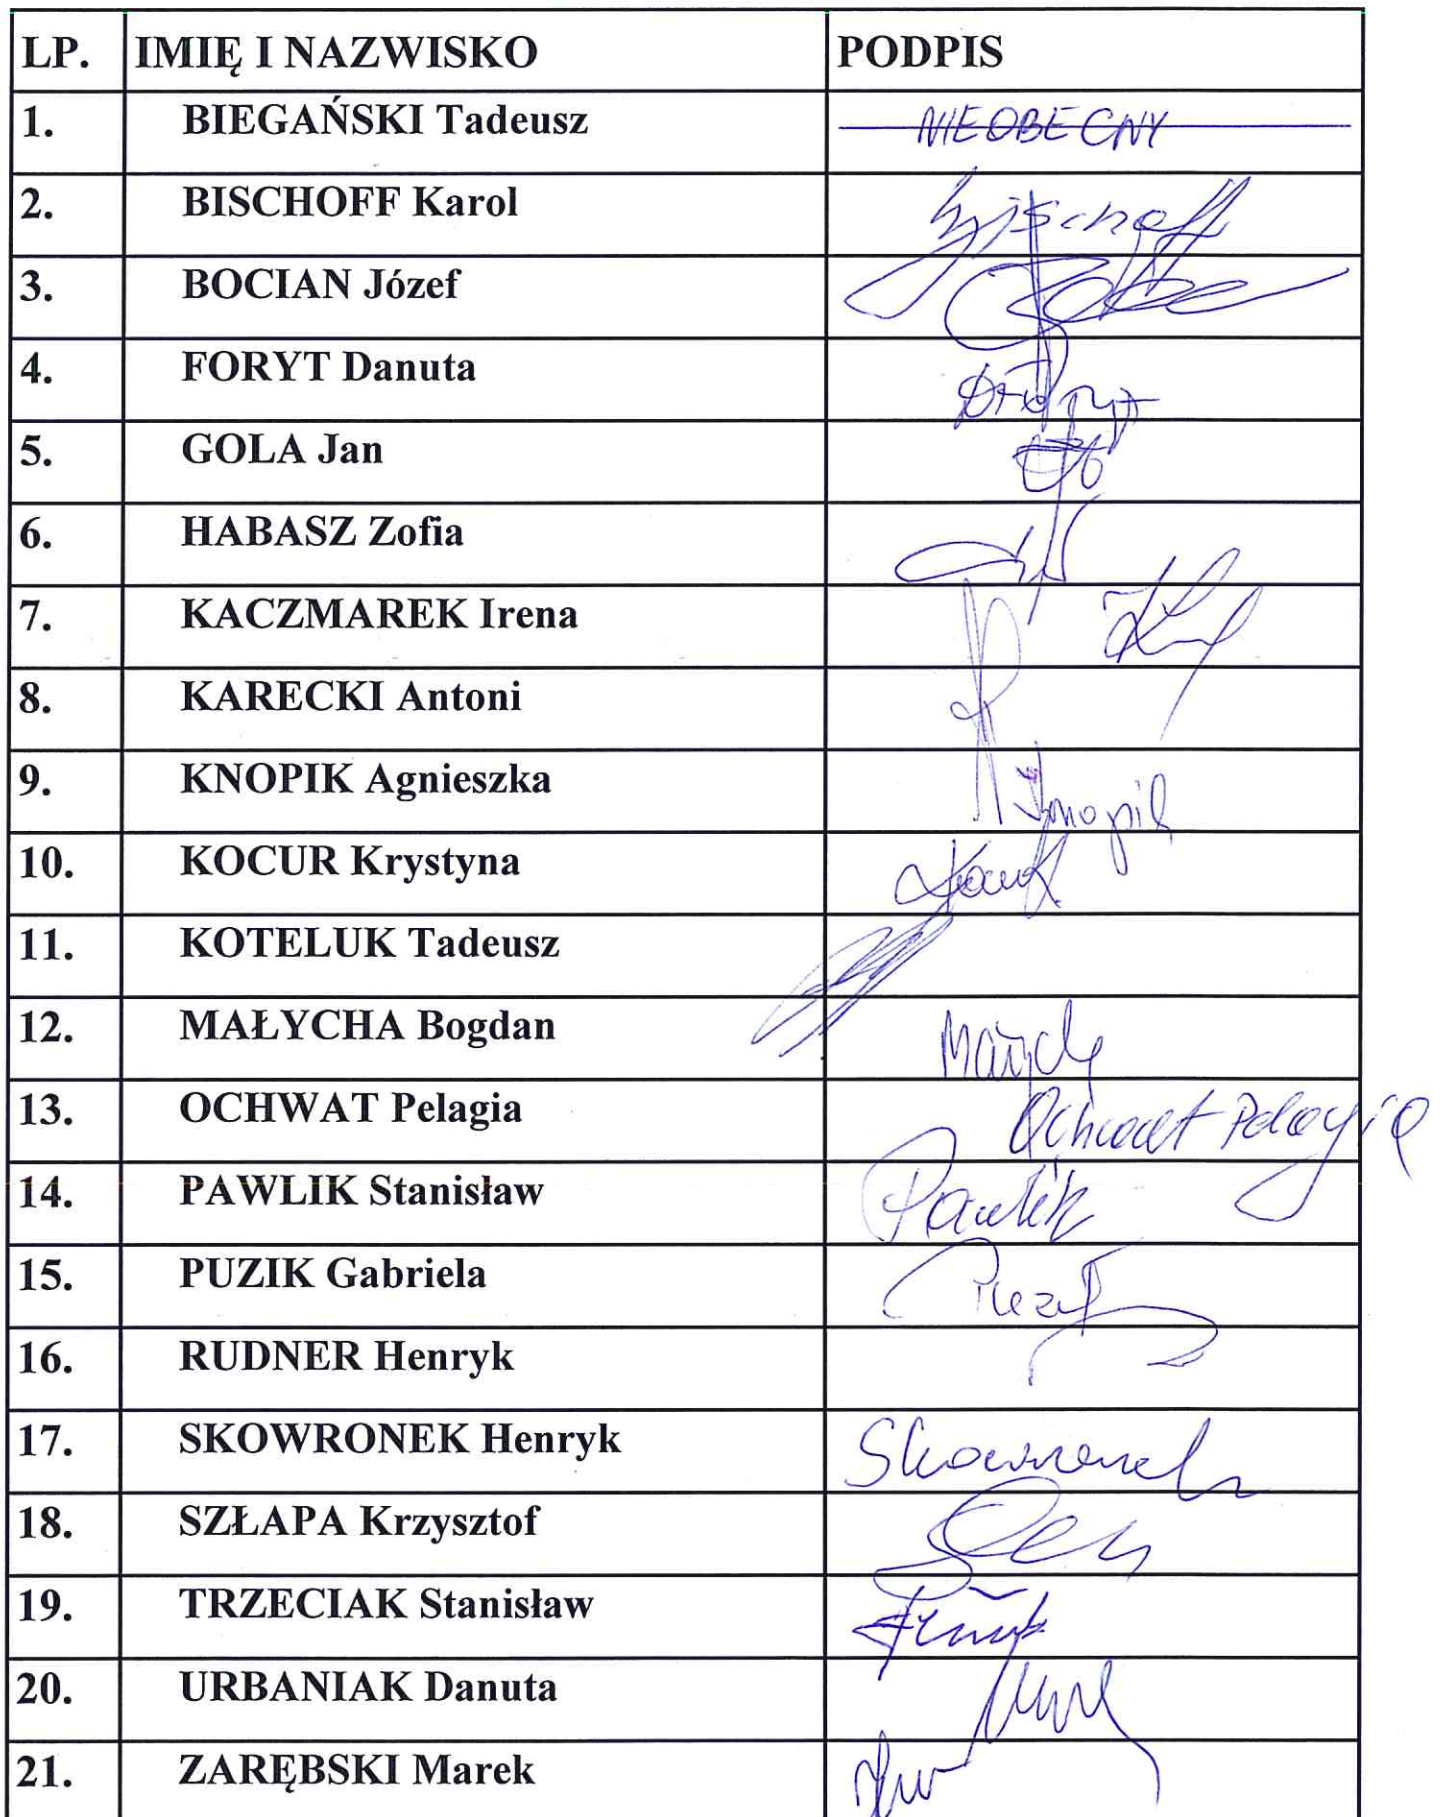 LP. IMIĘ I NAZWISKO PODPIS
1. BIEGAŃSKI Tadeusz NIEOBECNY
2. BISCHOFF Karol Bischoff
3. BOCIAN Józef
4. FORYT Danuta
5. GOLA Jan
6. HABASZ Zofia
7. KACZMAREK Irena
8. KARECKI Antoni
9. KNOPIK Agnieszka Knopik
10. KOCUR Krystyna
11. KOTELUK Tadeusz
12. MAŁYCHA Bogdan
13. OCHWAT Pelagia Ochwat Pelagia
14. PAWLIK Stanisław Pawlik
15. PUZIK Gabriela
16. RUDNER Henryk
17. SKOWRONEK Henryk Skowronek
18. SZŁAPA Krzysztof
19. TRZECIAK Stanisław
20. URBANIAK Danuta
21. ZARĘBSKI Marek